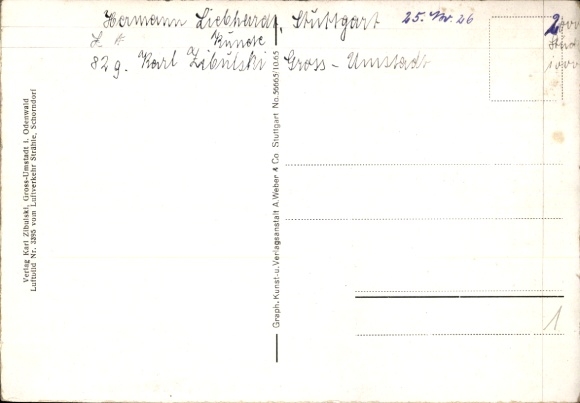 Hermann Liebhardt, Stuttgart 25. Nr. 26
Kunde
82 g. Karl Zibulski Gross-Umstadt
2000
Stück
1000
Verlag Karl Zibulski, Gross-Umstadt i. Odenwald
Luftbild Nr. 3395 vom Luftverkehr Strähle, Schorndorf
Graph. Kunst-u. Verlagsanstalt A. Weber & Co. Stuttgart No. 56665/10.65
1